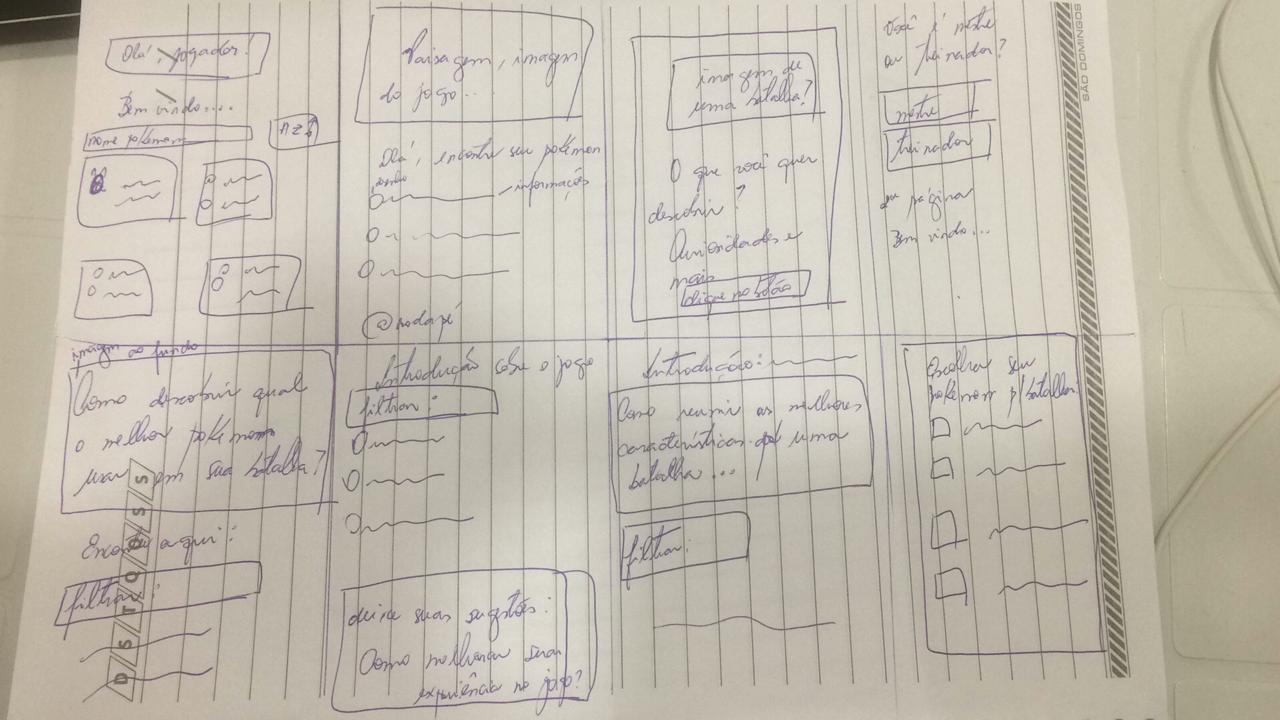 Olá, jogador!
Bem vindo....
nome pokémon
AZ
Paisagem, imagem
do jogo...
Olá, encontre seu pokémon
informações
@rodapé
imagem de
uma batalha?
O que você quer
descobrir?
Curiosidades e
mais
clique no botão
Você é mestre
ou treinador?
mestre
treinador
2ª página
Bem vindo...
imagem ao fundo
Como descobrir qual
o melhor pokémon
usar em sua batalha?
Encontre aqui:
filtrar:
Introdução sobre o jogo
filtrar:
deixe suas sugestões:
Como melhorar sua
experiência no jogo?
Introdução:
Como reunir as melhores
características de uma
batalha...
filtrar:
Escolha seu
pokémon p/ batalha:
SÃO DOMINGOS
D S T Q Q S S